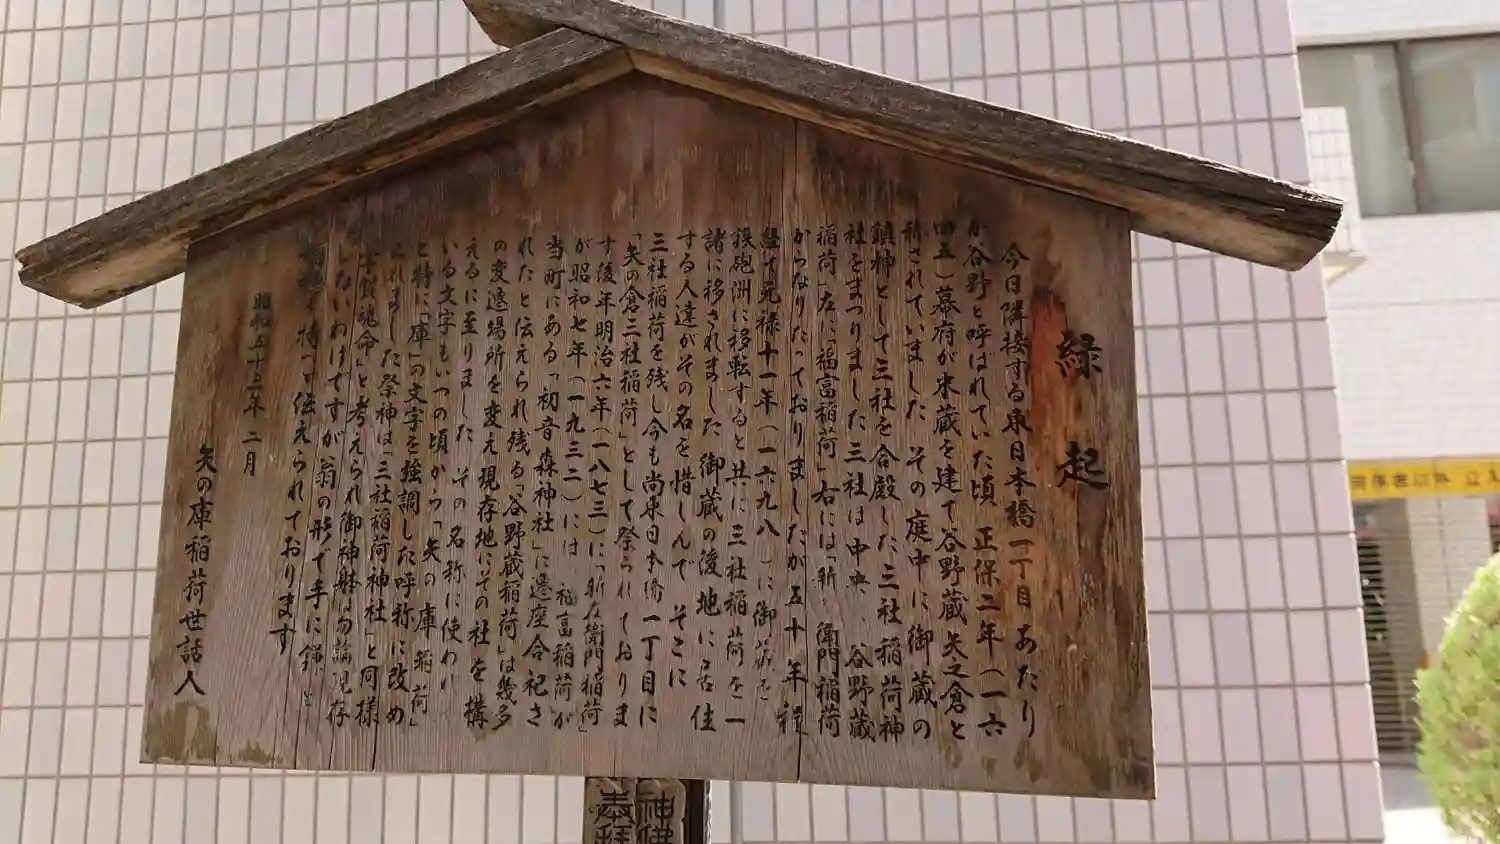 縁起
今日隣接する東日本橋一丁目あたり
か谷野と呼ばれていた頃 正保二年(一六
四五)幕府が米蔵を建て谷野蔵矢之倉と
称されていました その庭中に御蔵の
鎮神として三社を合殿した三社稲荷神
社をまつりました三社は中央、谷野蔵
稲荷」左に「福富稲荷」右には「新 衛門稲荷
からなりたっておりましたが五十年程
経て元禄十一年(一六九八 )に御蔵を
鉄砲洲に移転すると共に三社稲荷を一
諸に移されました御蔵の後地に居住
する人達がその名を惜しんで そこに
三社稲荷を残し今も尚東日本橋一丁目に
「矢の倉三社稲荷」として祭られておりま
す後年明治六年(一八七三)に「新左衛門稲荷」
が昭和七年(一九三二)には 福富稲荷が
当町にある「初音森神社」に遷座合祀さ
れたと伝えられ残る「谷野蔵稲荷」は幾多
の変遷場所を変え現存地にその社を構
えるに至りました その名称に使われ
いる文字もいつの頃から「矢の庫稲荷」
と特に「庫」の文字を強調した呼称に改め
られました祭神は「三社稲荷神社」と同様
魂命」と考えられ御神体は勿論現存
しないわけですが翁の形で手に鎌と
を持って伝えられております
昭和五十三年 二月
矢の庫稲荷世話人
奉 神